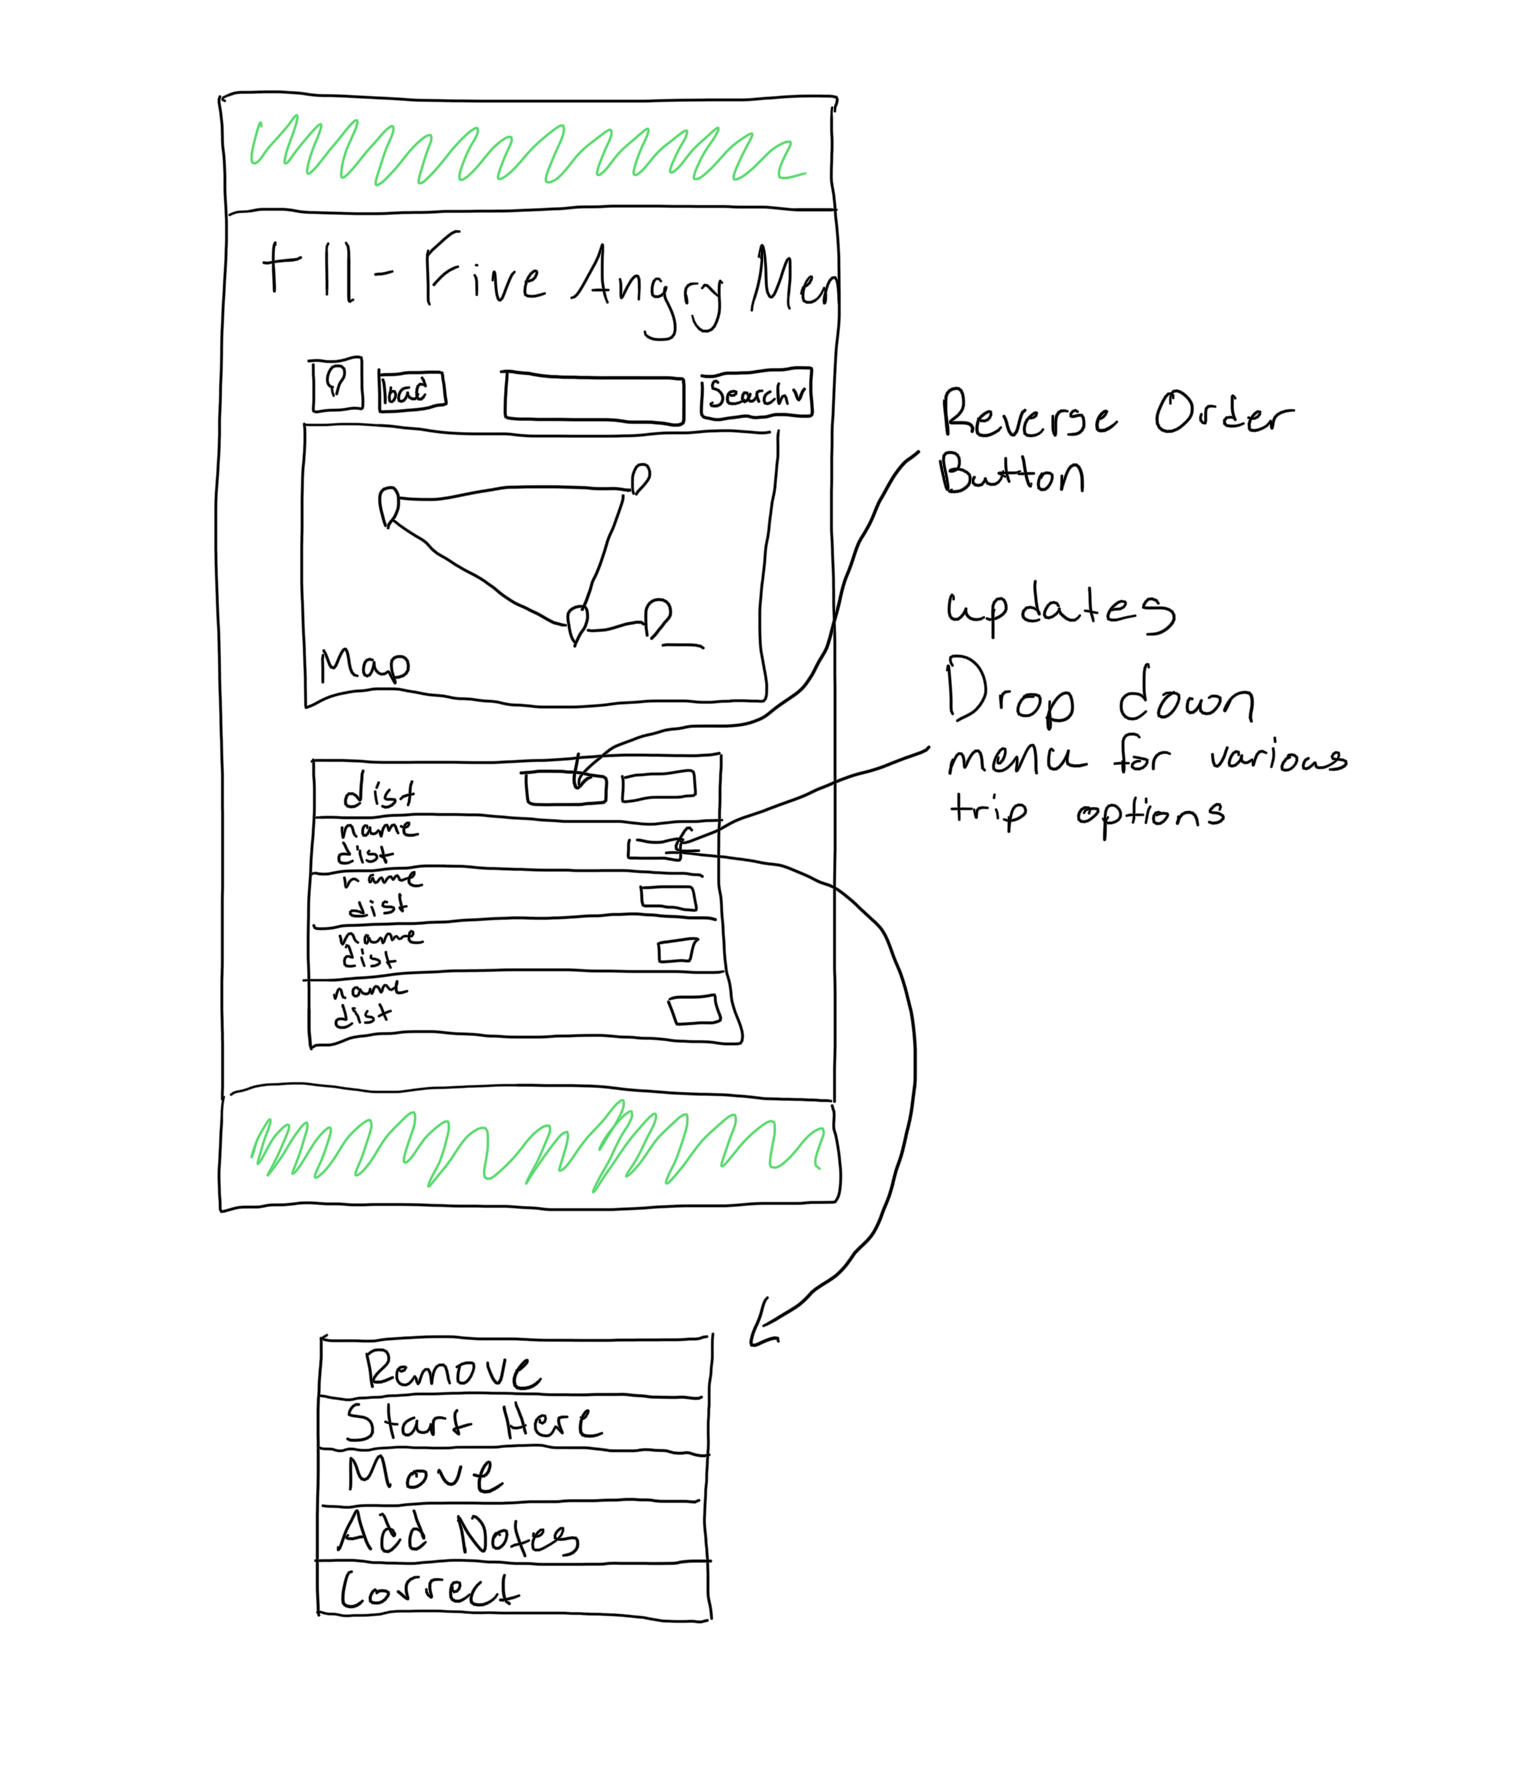 t11 - Five Angry Men
load
Search v
Map
dist
name
dist
name
dist
name
dist
name
dist
Reverse Order
Button
updates
Drop down
menu for various
trip options
Remove
Start Here
Move
Add Notes
Correct